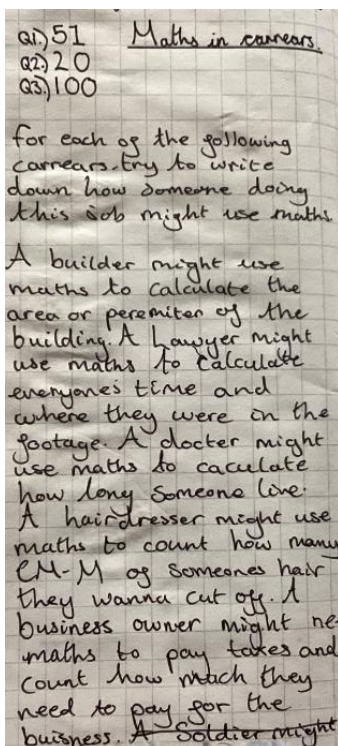 Q1.) 51 Maths in carrears.
Q2.) 20
Q3.) 100
for each of the following
carrears. try to write
down how someone doing
this job might use maths.
A builder might use
maths to calculate the
area or peremiter of the
building. A Lawyer might
use maths to calculate
everyones time and
where they were in the
footage. A docter might
use maths to caculate
how long someone live.
A hairdresser might use
maths to count how many
CM-M of someones hair
they wanna cut off. A
business owner might ne
maths to pay taxes and
count how much they
need to pay for the
buisness. A Soldier might